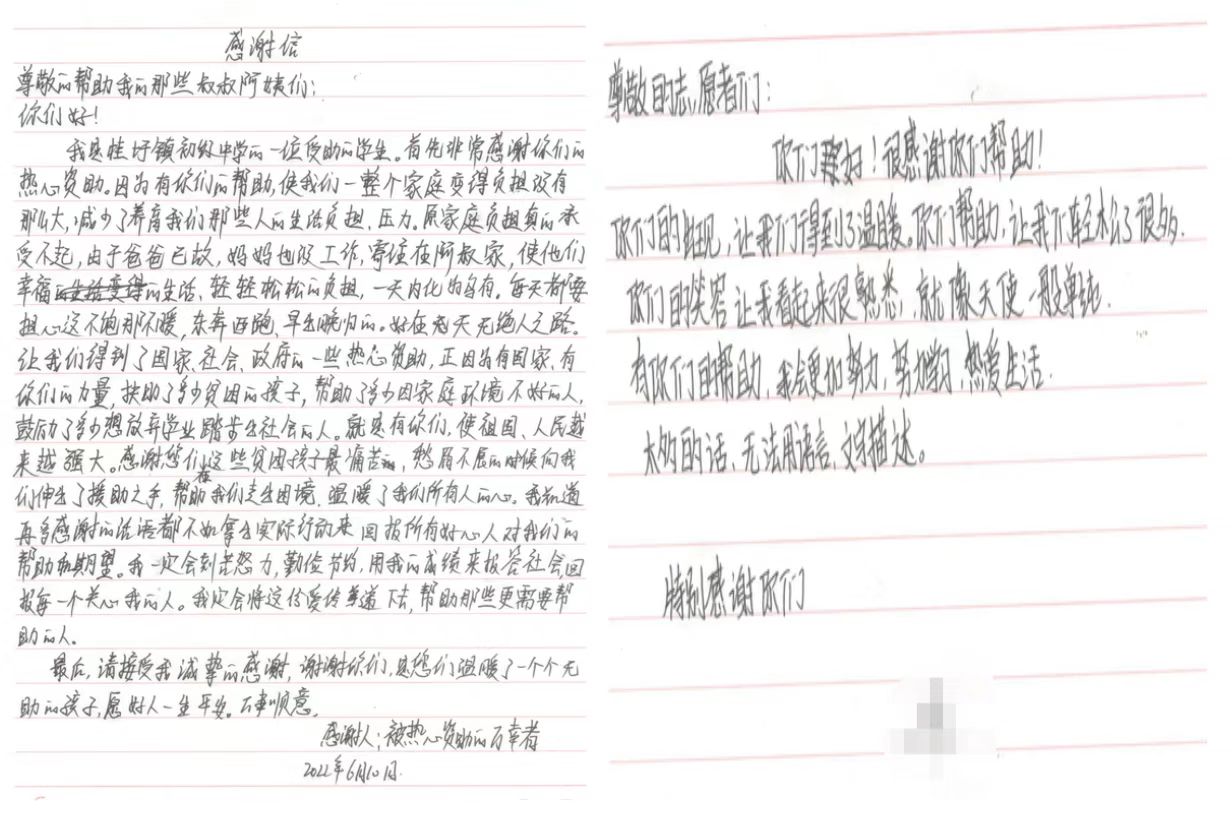 感谢信
尊敬的帮助我的那些叔叔阿姨们:
你们好!
我是桂圩镇初级中学的一位受助的学生。首先非常感谢你们的
热心资助。因为有你们的帮助,使我们一整个家庭变得负担没有
那么大,减少了养育我们那些人的生活负担、压力。原家庭负担真的承
受不起,由于爸爸已故,妈妈也没工作,寄住在阿叔家,使他们
幸福的生活、轻轻松松的负担,一天内化为乌有。每天都要
担心这不饱那不暖,东奔西跑,早出晚归的。好在老天无绝人之路。
让我们得到了国家、社会、政府的一些热心资助,正因为有国家、有
你们的力量,扶助了多少贫困的孩子,帮助了多少因家庭环境不好的人,
鼓励了多少想放弃学业踏步出社会的人。就是有你们,使祖国、人民越
来越强大。感谢您们在这些贫困孩子最痛苦,愁眉不展的时候向我
们伸出了援助之手,帮助我们走出困境,温暖了我们所有人的心。我知道
再多感谢的话语都不如拿出实际行动来回报所有好心人对我们的
帮助和期望。我一定会刻苦努力,勤俭节约,用我的成绩来报答社会,回
报每一个关心我的人。我定会将这份爱传递下去,帮助那些更需要帮
助的人。
最后,请接受我诚挚的感谢,谢谢你们,是您们温暖了一个个无
助的孩子,愿好人一生平安。万事顺意。
感谢人:被热心资助的万幸者
2022年6月10日.
尊敬的志愿者们:
你们好!很感谢你们帮助!
你们的出现,让我们得到了温暖。你们帮助,让我们轻松了很多.
你们的笑容让我看起来很熟悉,就像天使一般单纯.
有你们的帮助,我会更加努力,努力学习,热爱生活.
太多的话,无法用语言,文字描达。
特别感谢你们